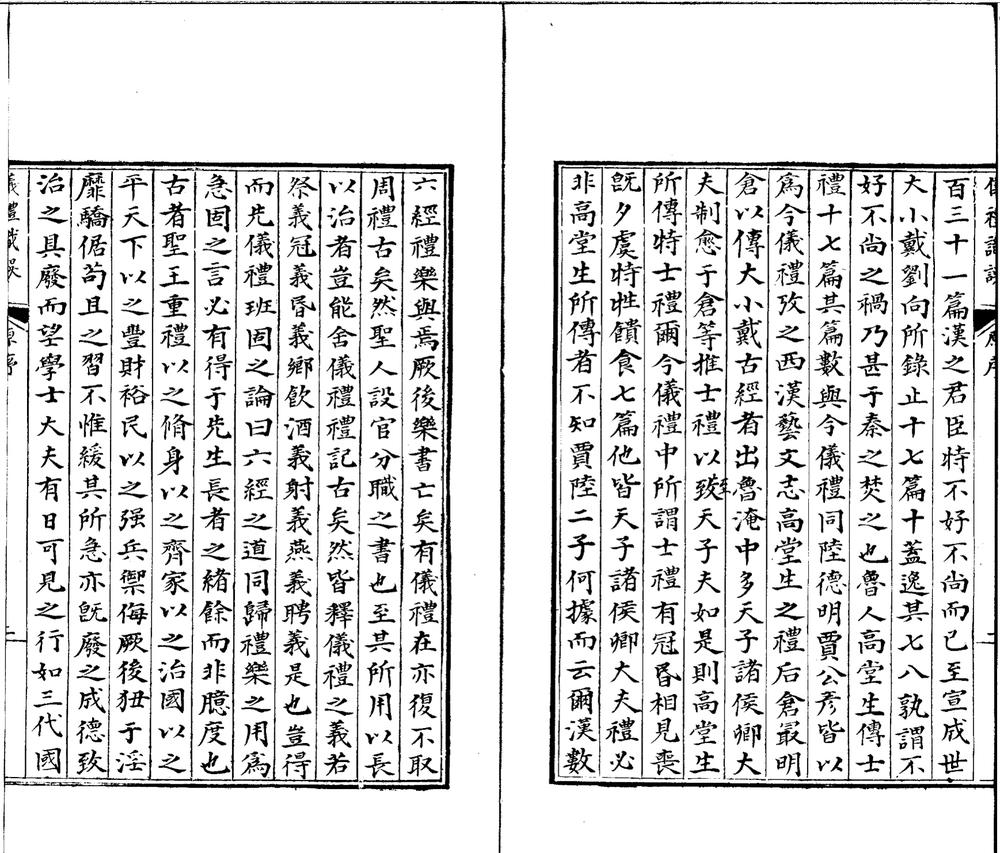 百三十一篇漢之君臣時不好不尚而已至宣成世
大小戴劉向所錄止十七篇十蓋逸其七八孰謂不
好不尚之禍乃甚于秦之焚之也魯人高堂生傳士
禮十七篇其篇數與今儀禮同陸德明賈公彥皆以
爲今儀禮攷之西漢藝文志高堂生之禮后倉最明
倉以傳大小戴古經者出魯淹中多天子諸侯卿大
夫制愈于倉等推士禮以致至天子夫如是則高堂生
所傳特士禮爾今儀禮中所謂士禮有冠昏相見喪
旣夕虞特牲饋食七篇他皆天子諸侯卿大夫禮必
非高堂生所傳者不知賈陸二子何據而云爾漢數
六經禮樂與焉厥後樂書亡矣有儀禮在亦復不取
周禮古矣然聖人設官分職之書也至其所用以長
以治者豈能舍儀禮禮記古矣然皆釋儀禮之義若
祭義冠義昏義鄉飲酒義射義燕義聘義是也豈得
而先儀禮班固之論曰六經之道同歸禮樂之用爲
急固之言必有得于先生長者之緒餘而非臆度也
古者聖王重禮以之脩身以之齊家以之治國以之
平天下以之豐財裕民以之强兵禦侮厥後狃于淫
靡驕倨苟且之習不惟緩其所急亦旣廢之成德致
治之具廢而望學士大夫有日可見之行如三代國